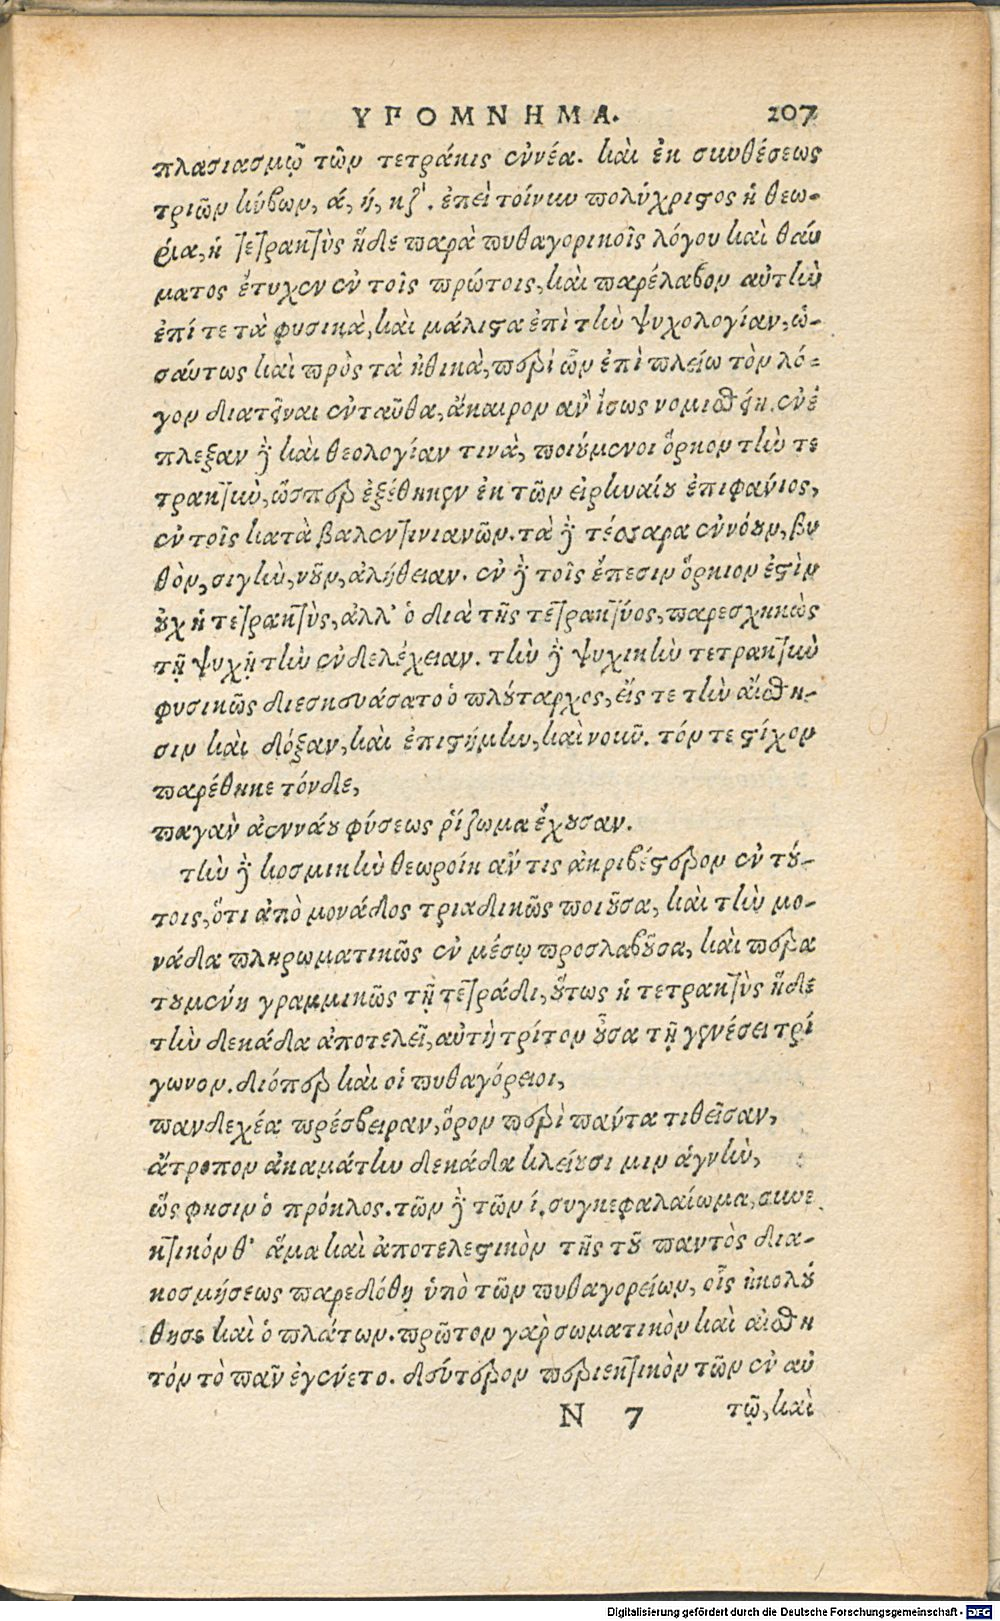 ΥΠΟΜΝΗΜΑ. 207
πλασιασμῷ τῶν τετράκις ἐννέα. καὶ ἐκ συνθέσεως
τριῶν κύβων, ά, ή, κζ΄. ἐπεὶ τοίνυν πολύχρηστος ἡ θεω-
ρία, ἡ τετρακτὺς ἥδε παρὰ πυθαγορικοῖς λόγου καὶ θαύ
ματος ἔτυχεν ἐν τοῖς πρώτοις, καὶ παρέλαβον αὐτὴν
ἐπί τε τὰ φυσικὰ, καὶ μάλιστα ἐπὶ τὴν ψυχολογίαν, ὡ-
σαύτως καὶ πρὸς τὰ ἠθικὰ, περὶ ὧν ἐπὶ πλείω τὸν λό-
γον διατεῖναι ἐνταῦθα, ἄκαιρον ἂν ἴσως νομισθείη. ἐνέ
πλεξαν δὲ καὶ θεολογίαν τινὰ, ποιούμενοι ὅρκον τὴν τε
τρακτὺν, ὥσπερ ἐξέθηκεν ἐκ τῶν εἰρηναίου ἐπιφάνιος,
ἐν τοῖς κατὰ βαλεντινιανῶν. τὰ δὲ τέσσαρα ἐννόουν, βυ
θὸν, σιγὴν, νοῦν, ἀλήθειαν. ἐν δὲ τοῖς ἔπεσιν ὅρκιον ἐστὶν
οὐχ ἡ τετρακτὺς, ἀλλ' ὁ διὰ τῆς τετρακτύος, παρεσχηκὼς
τῇ ψυχῇ τὴν ἐνδελέχειαν. τὴν δὲ ψυχικὴν τετρακτὺν
φυσικῶς διεσκευάσατο ὁ πλούταρχος, εἴς τε τὴν αἴσθη-
σιν καὶ δόξαν, καὶ ἐπιστήμην, καὶ νοῦν. τόν τε στίχον
παρέθηκε τόνδε,
παγὰν ἀεννάου φύσεως ῥίζωμα ἔχουσαν.
τὴν δὲ κοσμικὴν θεωροίη ἄν τις ἀκριβέστερον ἐν τού-
τοις, ὅτι ἀπὸ μονάδος τριαδικῶς ποιοῦσα, καὶ τὴν μο-
νάδα πληρωματικῶς ἐν μέσῳ προσλαβοῦσα, καὶ περα
τουμένη γραμμικῶς τῇ τετράδι, οὕτως ἡ τετρακτὺς ἥδε
τὴν δεκάδα ἀποτελεῖ, αὐτὴ τρίτον οὖσα τῇ γενέσει τρί
γωνον. διόπερ καὶ οἱ πυθαγόρειοι,
πανδεχέα πρέσβειραν, ὅρον περὶ πάντα τιθεῖσαν,
ἄτροπον ἀκαμάτην δεκάδα κλείουσι μιν ἁγνὴν,
ὥς φησιν ὁ πρόκλος. τῶν δὲ τῶν ί. συγκεφαλαίωμα, συνε
κτικόν θ' ἅμα καὶ ἀποτελεστικὸν τῆς τοῦ παντὸς δια-
κοσμήσεως παρεδόθη ὑπὸ τῶν πυθαγορείων, οἷς ἠκολού
θησε καὶ ὁ πλάτων. πρῶτον γὰρ σωματικὸν καὶ αἰσθη
τόν τὸ πᾶν ἐγένετο. δεύτερον περιεκτικὸν τῶν ἐν αὐ
N 7 τῷ, καὶ
Digitalisierung gefördert durch die Deutsche Forschungsgemeinschaft - DFG